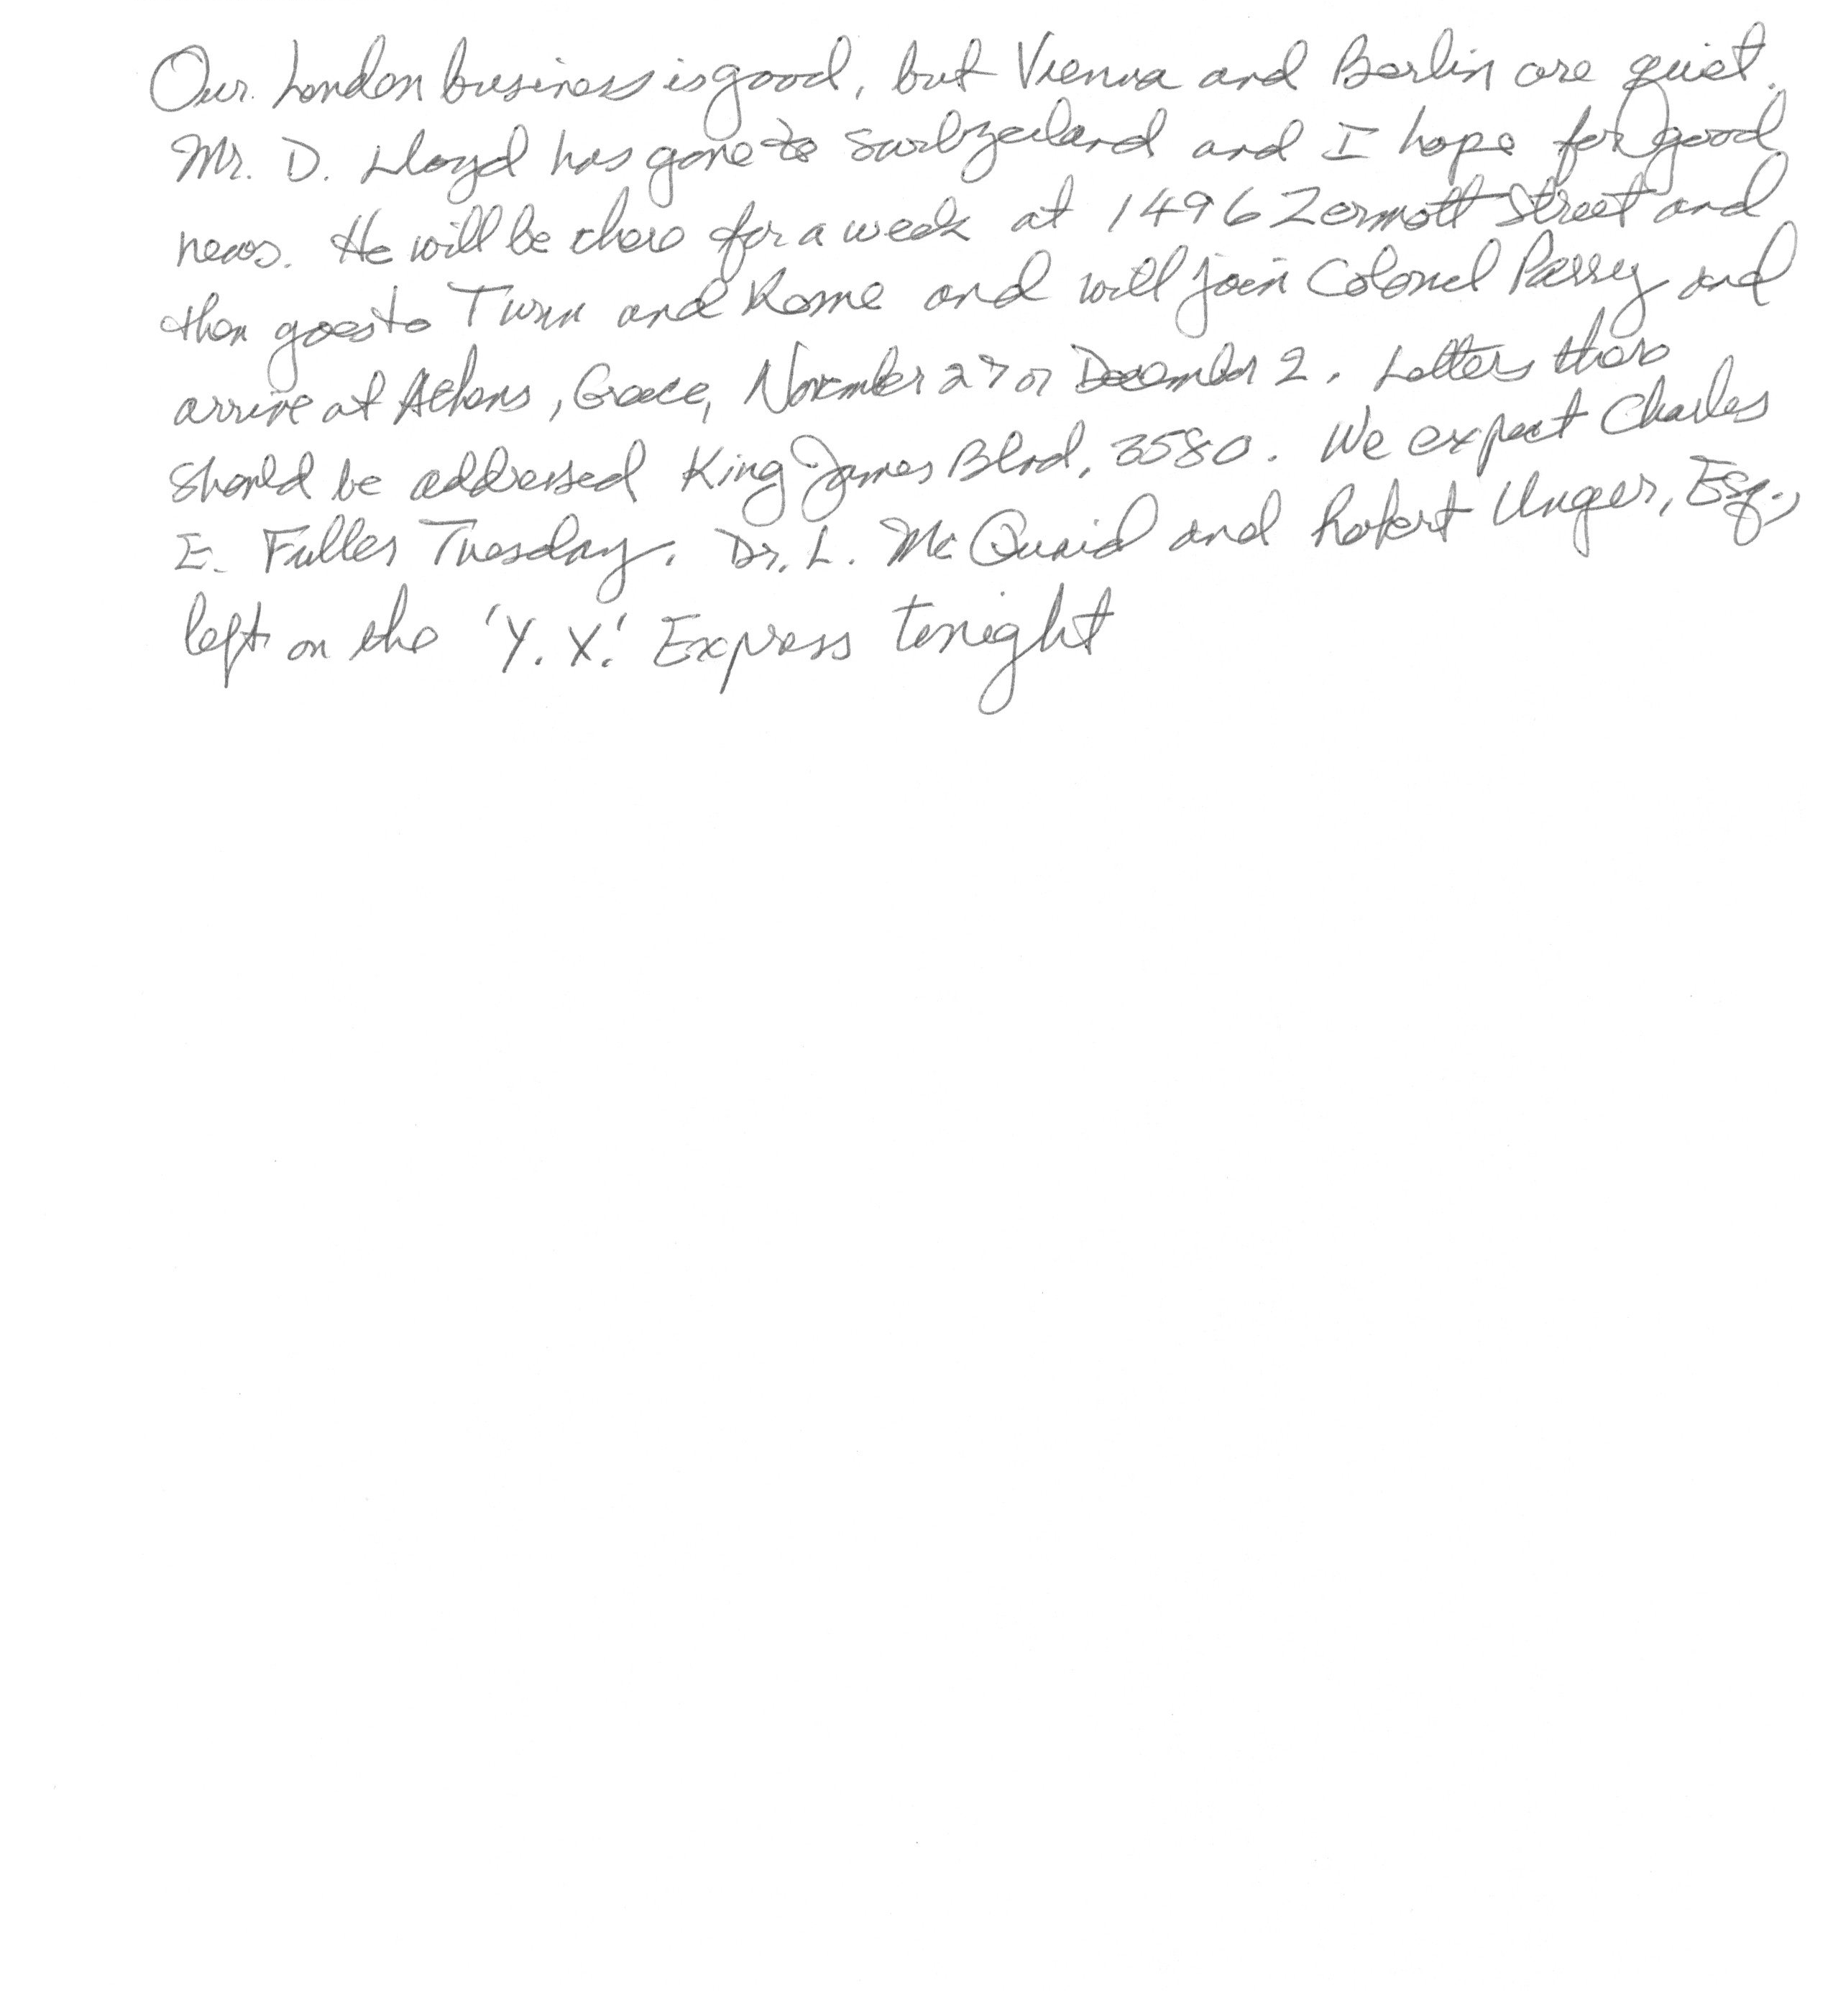 Our London business is good, but Vienna and Berlin are quiet.
Mr. D. Lloyd has gone to Switzerland and I hope for good
news. He will be there for a week at 1496 Zermott Street and
then goes to Turin and Rome and will join Colonel Parry and
arrive at Athens, Greece, November 27 or December 2. Letters there
should be addressed King James Blvd, 3580. We expect Charles
E. Fuller Tuesday. Dr. L. McQuaid and Robert Unger, Esq.,
left on the 'Y. X.' Express tonight